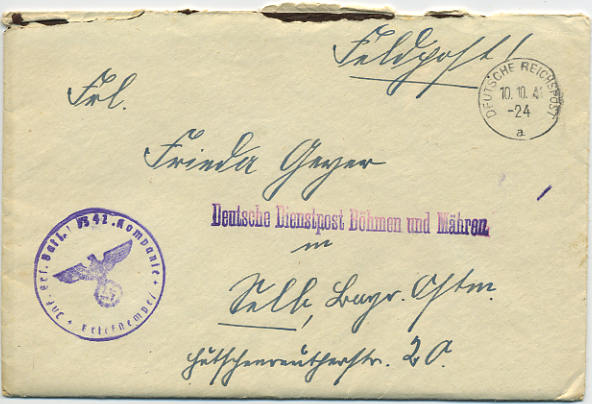 Feldpost!
DEUTSCHE REICHSPOST
10.10.41
-24
a
Frl.
Frieda Geyer
Deutsche Dienstpost Böhmen und Mähren
in
Selb, Bayr. Ostm.
Hutschenreutherstr. 20.
Inf. Ers. Batl. Kompanie
Briefstempel